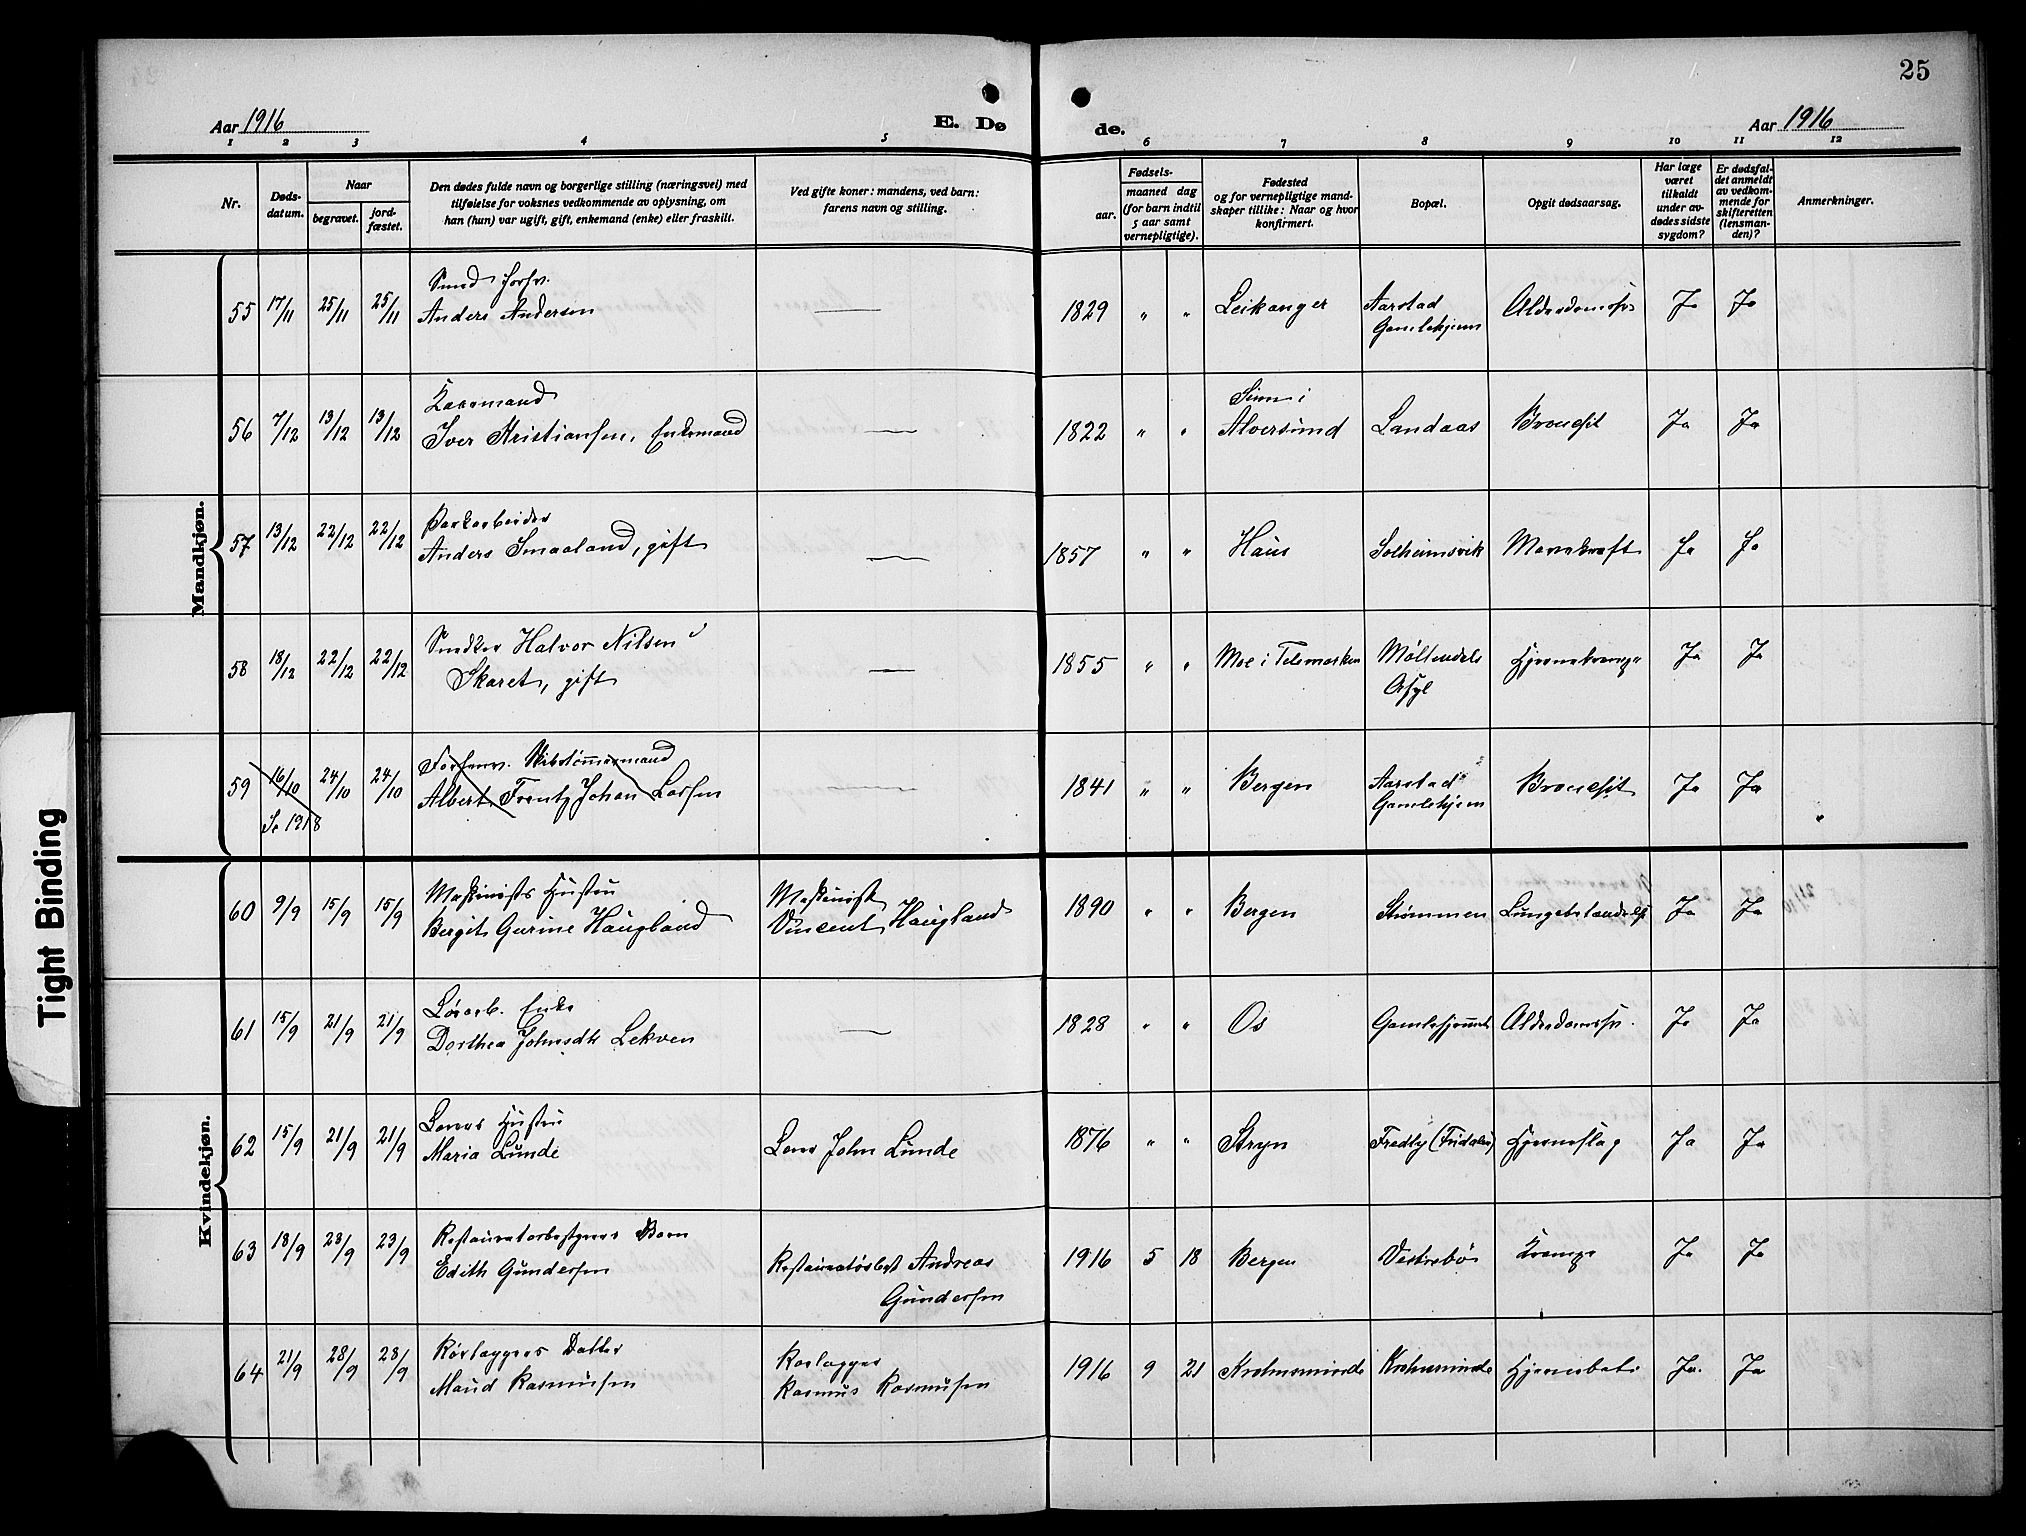 25
Aar 1916
E. Dø
de.
Aar 1916
1 2 3 4 5 6 7 8 9 10 11 12
Nr.
Døds-
datum.
Naar
begravet.
jord-
fæstet.
Den dødes fulde navn og borgerlige stilling (næringsvei) med
tilføielse for voksnes vedkommende av oplysning, om
han (hun) var ugift, gift, enkemand (enke) eller fraskilt.
Ved gifte koner: mandens, ved barn:
farens navn og stilling.
Fødsels-
aar.
maaned dag
(for barn indtil
5 aar samt
vernepligtige).
Fødested
og for vernepligtige mand-
skaper tillike: Naar og hvor
konfirmert.
Bopæl.
Opgit dødsaarsag.
Har læge
været
tilkaldt
under av-
dødes sidste
sygdom?
Er dødsfal-
det anmeldt
av vedkom-
mende for
skifteretten
(lensman-
den)?
Anmerkninger.
Mandkjøn.
Smed forsv.
55 17/11 25/11 25/11 Anders Andersen — 1829 " " Leikanger Aarstad Ja Ja
Gamlehjem
56 7/12 13/12 13/12 Iver Kristiansen, Enkemand — 1822 " " Alversund Landaas Broncit Ja Ja
57 13/12 22/12 22/12 Anders Smaaland, gift — 1857 " " Haus Solheimsvik Mavekræft Ja Ja
58 18/12 22/12 22/12 Halvor Nilsen
Skaret, gift — 1855 " " Moe i Telemarken Møllendals Ja Ja
Asyl
Forhenv. Skibstømmermand
59 16/10 24/10 24/10 Albert Frentz Johan Larsen — 1841 " " Bergen Aarstad Broncit Ja Ja
Se 1918
Gamlehjem
Kvindekjøn.
Maskinists Hustru Maskinist
60 9/9 15/9 15/9 Bergit Gurine Haugland Vincent Haugland 1890 " " Bergen Strømmen Ja Ja
Enke
61 15/9 21/9 21/9 Dorthea Johnsdtr Lekven — 1828 " " Os Ja Ja
Hustru
62 15/9 21/9 21/9 Maria Lunde John Lunde 1876 " " Stryn Fredly (Fridalen) Hjerneslag Ja Ja
Barn
63 18/9 23/9 23/9 Edith Gundersen Andreas
Gundersen 1916 5 18 Bergen Vestrebø Krampe Ja Ja
Rørlæggers Datter Rørlægger
64 21/9 28/9 28/9 Maud Rasmusen Rasmus Rasmusen 1916 9 21 Ja. Ja
Tight Binding